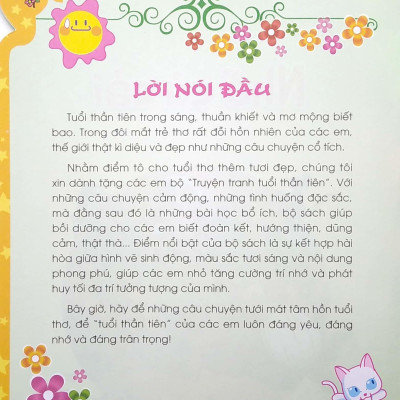 LỜI NÓI ĐẦU
Tuổi thần tiên trong sáng, thuần khiết và mơ mộng biết
bao. Trong đôi mắt trẻ thơ rất đỗi hồn nhiên của các em,
thế giới thật kì diệu và đẹp như những câu chuyện cổ tích.
Nhằm điểm tô cho tuổi thơ thêm tươi đẹp, chúng tôi
xin dành tặng các em bộ "Truyện tranh tuổi thần tiên". Với
những câu chuyện cảm động, những tình huống đặc sắc,
mà đằng sau đó là những bài học bổ ích, bộ sách giúp
bồi dưỡng cho các em biết đoàn kết, hướng thiện, dũng
cảm, thật thà... Điểm nổi bật của bộ sách là sự kết hợp hài
hòa giữa hình vẽ sinh động, màu sắc tươi sáng và nội dung
phong phú, giúp các em nhỏ tăng cường trí nhớ và phát
huy tối đa trí tưởng tượng của mình.
Bây giờ, hãy để những câu chuyện tưới mát tâm hồn tuổi
thơ, để "tuổi thần tiên" của các em luôn đáng yêu, đáng
nhớ và đáng trân trọng!